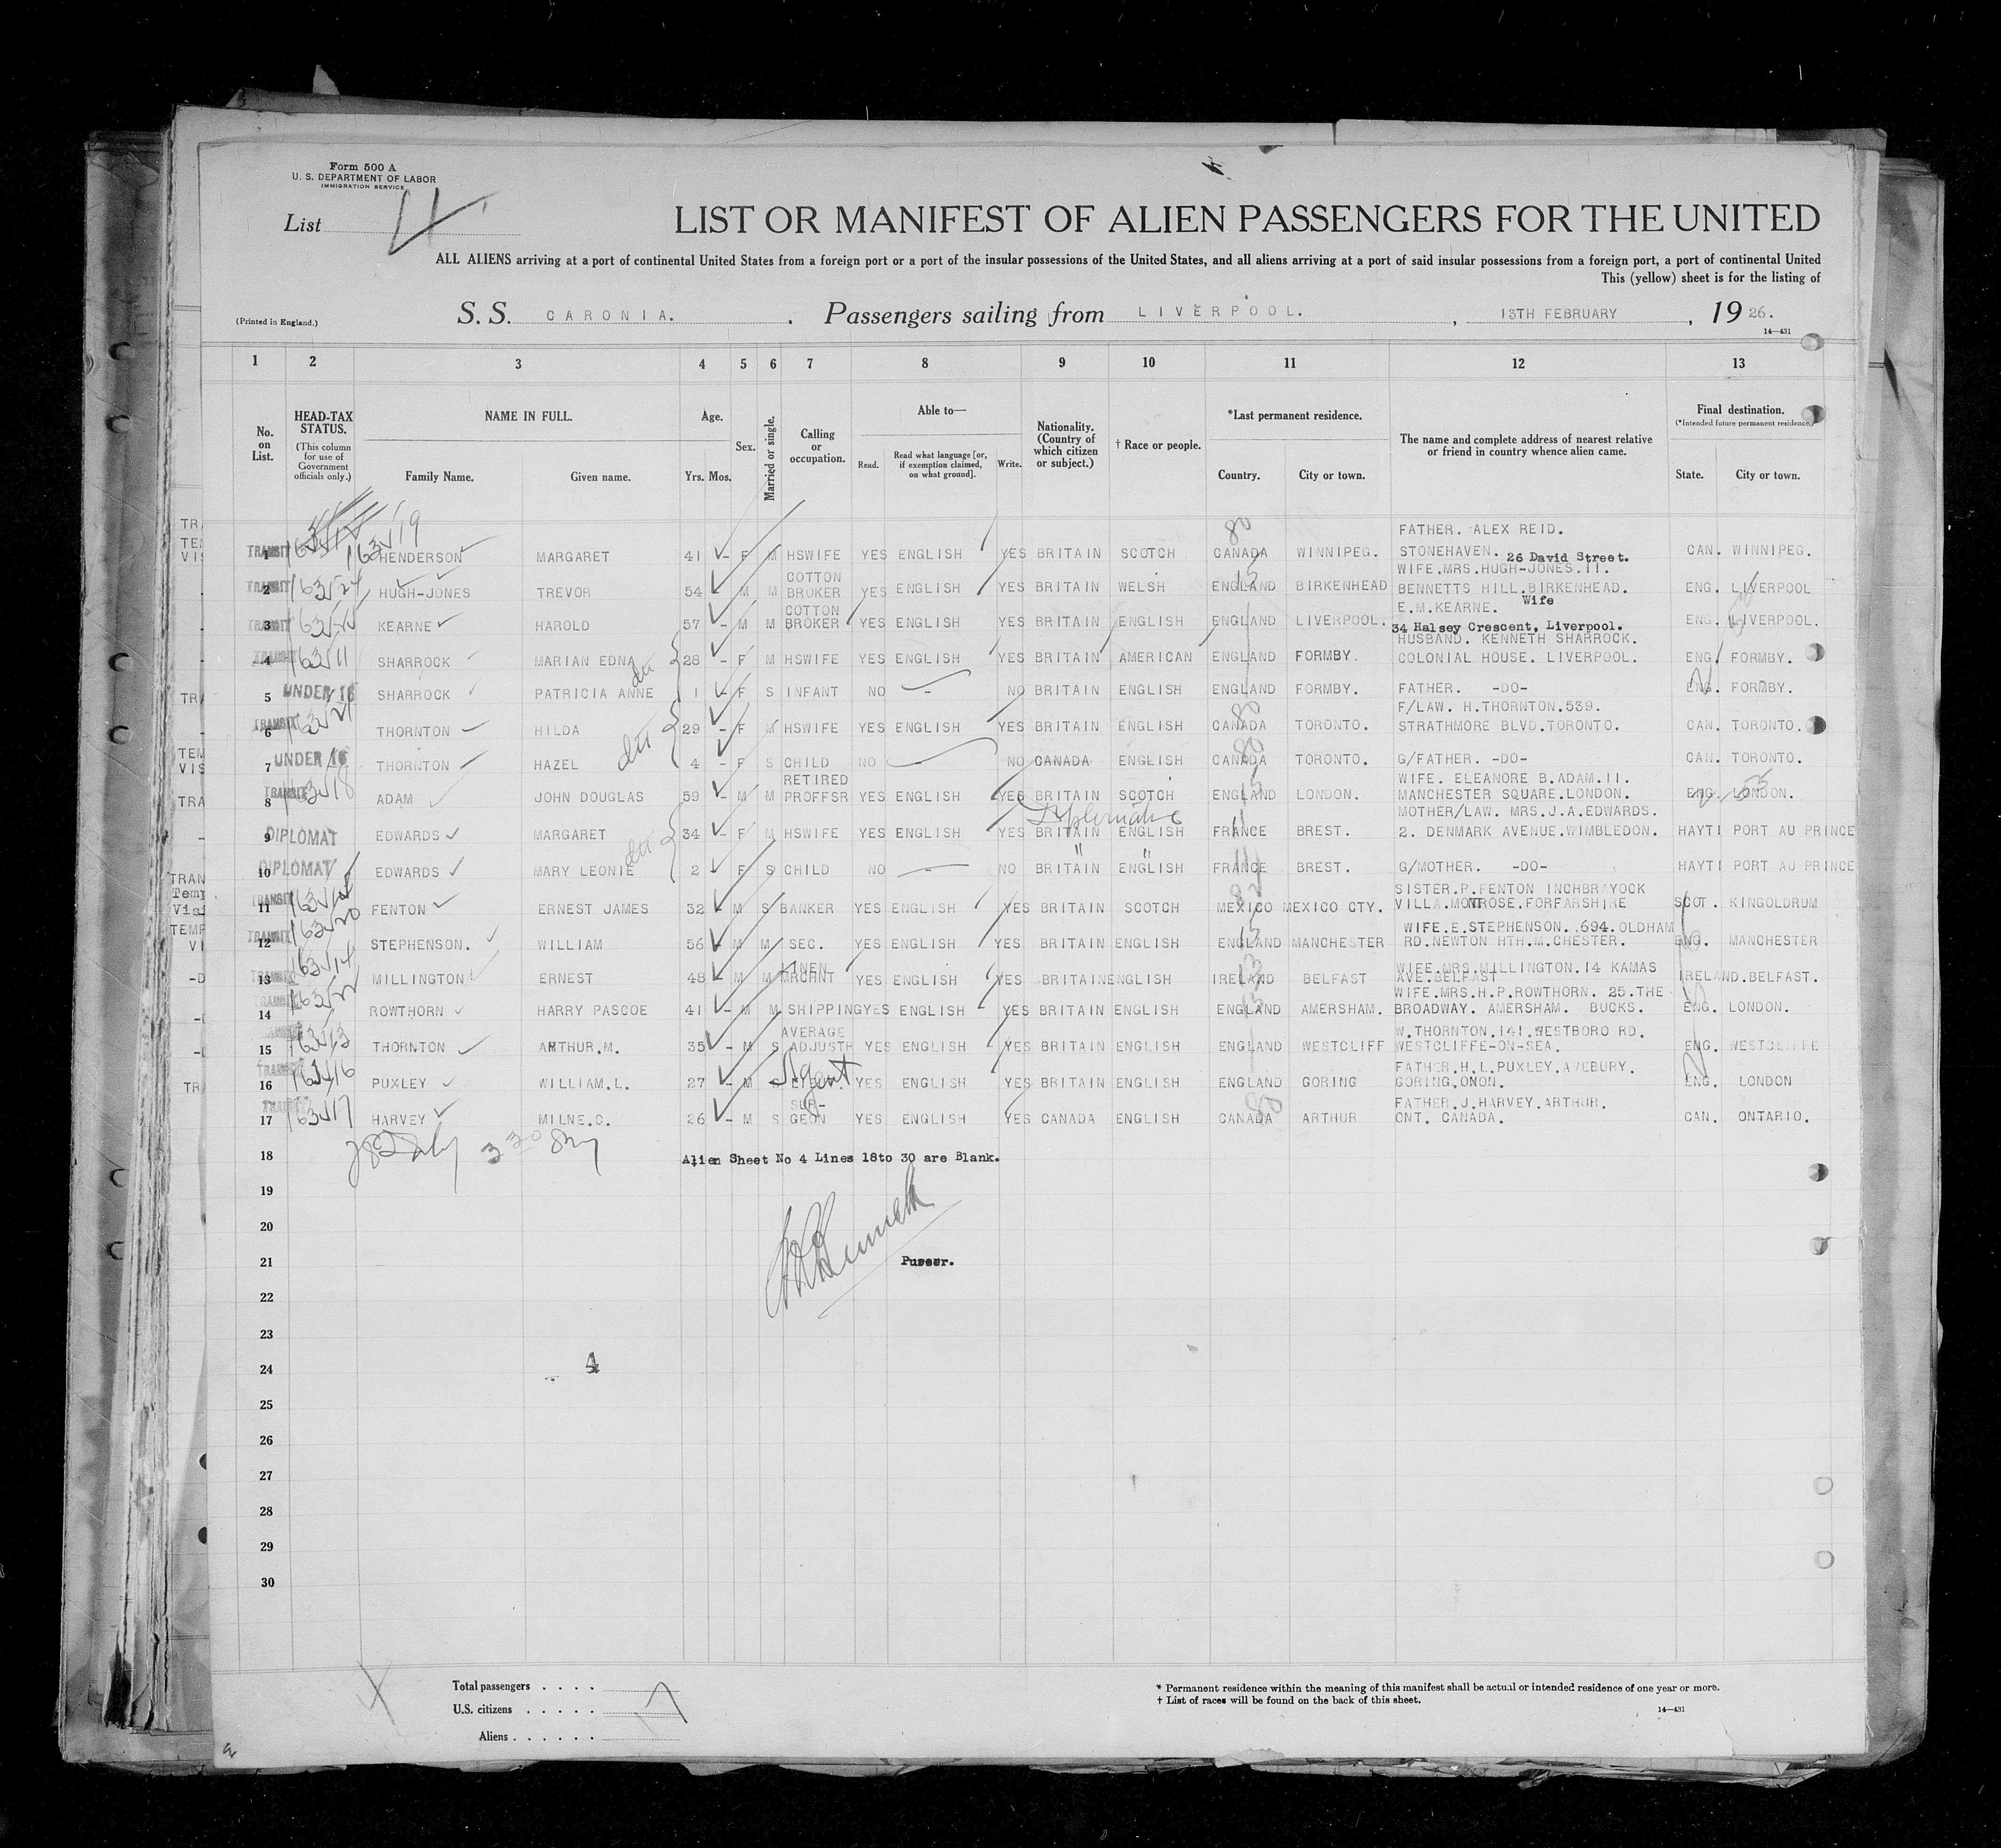 Form 500 A
U. S. DEPARTMENT OF LABOR
IMMIGRATION SERVICE
List 4
LIST OR MANIFEST OF ALIEN PASSENGERS FOR THE UNITED
ALL ALIENS arriving at a port of continental United States from a foreign port or a port of the insular possessions of the United States, and all aliens arriving at a port of said insular possessions from a foreign port, a port of continental United
This (yellow) sheet is for the listing of
(Printed in England.)
S. S. CARONIA. Passengers sailing from LIVERPOOL. , 13TH FEBRUARY , 19 26.
14—431
1 2 3 4 5 6 7 8 9 10 11 12 13
No. on List.
HEAD-TAX STATUS.
(This column for use of Government officials only.)
NAME IN FULL.
Family Name. Given name.
Age.
Yrs. Mos.
Sex.
Married or single.
Calling or occupation.
Able to—
Read. Read what language [or, if exemption claimed, on what ground]. Write.
Nationality. (Country of which citizen or subject.)
† Race or people.
*Last permanent residence.
Country. City or town.
The name and complete address of nearest relative or friend in country whence alien came.
Final destination.
(*Intended future permanent residence.)
State. City or town.
FATHER. ALEX REID.
1 TRANSIT HENDERSON MARGARET 41 - F M HSWIFE YES ENGLISH YES BRITAIN SCOTCH CANADA WINNIPEG. STONEHAVEN. 26 David Street. CAN. WINNIPEG.
COTTON WIFE.MRS.HUGH-JONES.11.
2 TRANSIT HUGH-JONES TREVOR 54 - M M BROKER YES ENGLISH YES BRITAIN WELSH ENGLAND BIRKENHEAD BENNETTS HILL.BIRKENHEAD. ENG. LIVERPOOL
COTTON E.M.KEARNE. Wife
3 TRANSIT KEARNE HAROLD 57 - M M BROKER YES ENGLISH YES BRITAIN ENGLISH ENGLAND LIVERPOOL. 34 Halsey Crescent, Liverpool. ENG. LIVERPOOL.
HUSBAND. KENNETH SHARROCK.
4 TRANSIT SHARROCK MARIAN EDNA 28 - F M HSWIFE YES ENGLISH YES BRITAIN AMERICAN ENGLAND FORMBY. COLONIAL HOUSE. LIVERPOOL. ENG. FORMBY.
5 UNDER 16 SHARROCK PATRICIA ANNE 1 - F S INFANT NO - NO BRITAIN ENGLISH ENGLAND FORMBY. FATHER. -DO- ENG. FORMBY.
F/LAW. H.THORNTON.539.
6 TRANSIT THORNTON HILDA 29 - F M HSWIFE YES ENGLISH YES BRITAIN ENGLISH CANADA TORONTO. STRATHMORE BLVD.TORONTO. CAN. TORONTO.
7 UNDER 16 THORNTON HAZEL 4 - F S CHILD NO - NO CANADA ENGLISH CANADA TORONTO. G/FATHER. -DO- CAN. TORONTO.
RETIRED WIFE. ELEANORE B.ADAM.11.
8 TRANSIT ADAM JOHN DOUGLAS 59 - M M PROFFSR YES ENGLISH YES BRITAIN SCOTCH ENGLAND LONDON. MANCHESTER SQUARE.LONDON. ENG. LONDON.
Diplomatic MOTHER/LAW. MRS.J.A.EDWARDS.
9 DIPLOMAT EDWARDS MARGARET 34 - F M HSWIFE YES ENGLISH YES BRITAIN ENGLISH FRANCE BREST. 2. DENMARK AVENUE.WIMBLEDON. HAYTI PORT AU PRINCE
10 DIPLOMAT EDWARDS MARY LEONIE 2 F S CHILD NO - NO BRITAIN ENGLISH FRANCE BREST. G/MOTHER. -DO- HAYTI PORT AU PRINCE
SISTER.P.FENTON INCHBRAYOCK
11 TRANSIT FENTON ERNEST JAMES 32 - M S BANKER YES ENGLISH YES BRITAIN SCOTCH MEXICO MEXICO CTY. VILLA.MONTROSE.FORFARSHIRE SCOT. KINGOLDRUM
WIFE.E.STEPHENSON. 694.OLDHAM
12 TRANSIT STEPHENSON. WILLIAM 56 - M M SEC. YES ENGLISH YES BRITAIN ENGLISH ENGLAND MANCHESTER RD.NEWTON HTH.M.CHESTER. ENG. MANCHESTER
LINEN WIFE.MRS.MILLINGTON.14 KAMAS
13 TRANSIT MILLINGTON ERNEST 48 - M M MRCHNT YES ENGLISH YES BRITAIN ENGLISH IRELAND BELFAST AVE.BELFAST IRELAND.BELFAST.
WIFE.MRS.H.P.ROWTHORN. 25.THE
14 TRANSIT ROWTHORN HARRY PASCOE 41 - M M SHIPPING YES ENGLISH YES BRITAIN ENGLISH ENGLAND AMERSHAM. BROADWAY. AMERSHAM. BUCKS. ENG. LONDON.
AVERAGE W.THORNTON.141.WESTBORO RD.
15 THORNTON ARTHUR.M. 35 - M S ADJUSTR YES ENGLISH YES BRITAIN ENGLISH ENGLAND WESTCLIFF WESTCLIFFE-ON-SEA. ENG. WESTCLIFFE
FATHER.H.L.PUXLEY.AVEBURY.
16 TRANSIT PUXLEY WILLIAM.L. 27 - M S Agent YES ENGLISH YES BRITAIN ENGLISH ENGLAND GORING GORING.ONON. ENG. LONDON
SUR- FATHER.J.HARVEY.ARTHUR.
17 TRANSIT HARVEY MILNE.C. 26 - M S GEON YES ENGLISH YES CANADA ENGLISH CANADA ARTHUR ONT. CANADA. CAN. ONTARIO.
18 Alien Sheet No 4 Lines 18to 30 are Blank.
19
20
21 Purser.
22
23
24 4
25
26
27
28
29
30
Total passengers . . . .
U.S. citizens . . . . . 17
Aliens . . . . . .
* Permanent residence within the meaning of this manifest shall be actual or intended residence of one year or more.
† List of races will be found on the back of this sheet.
14—431